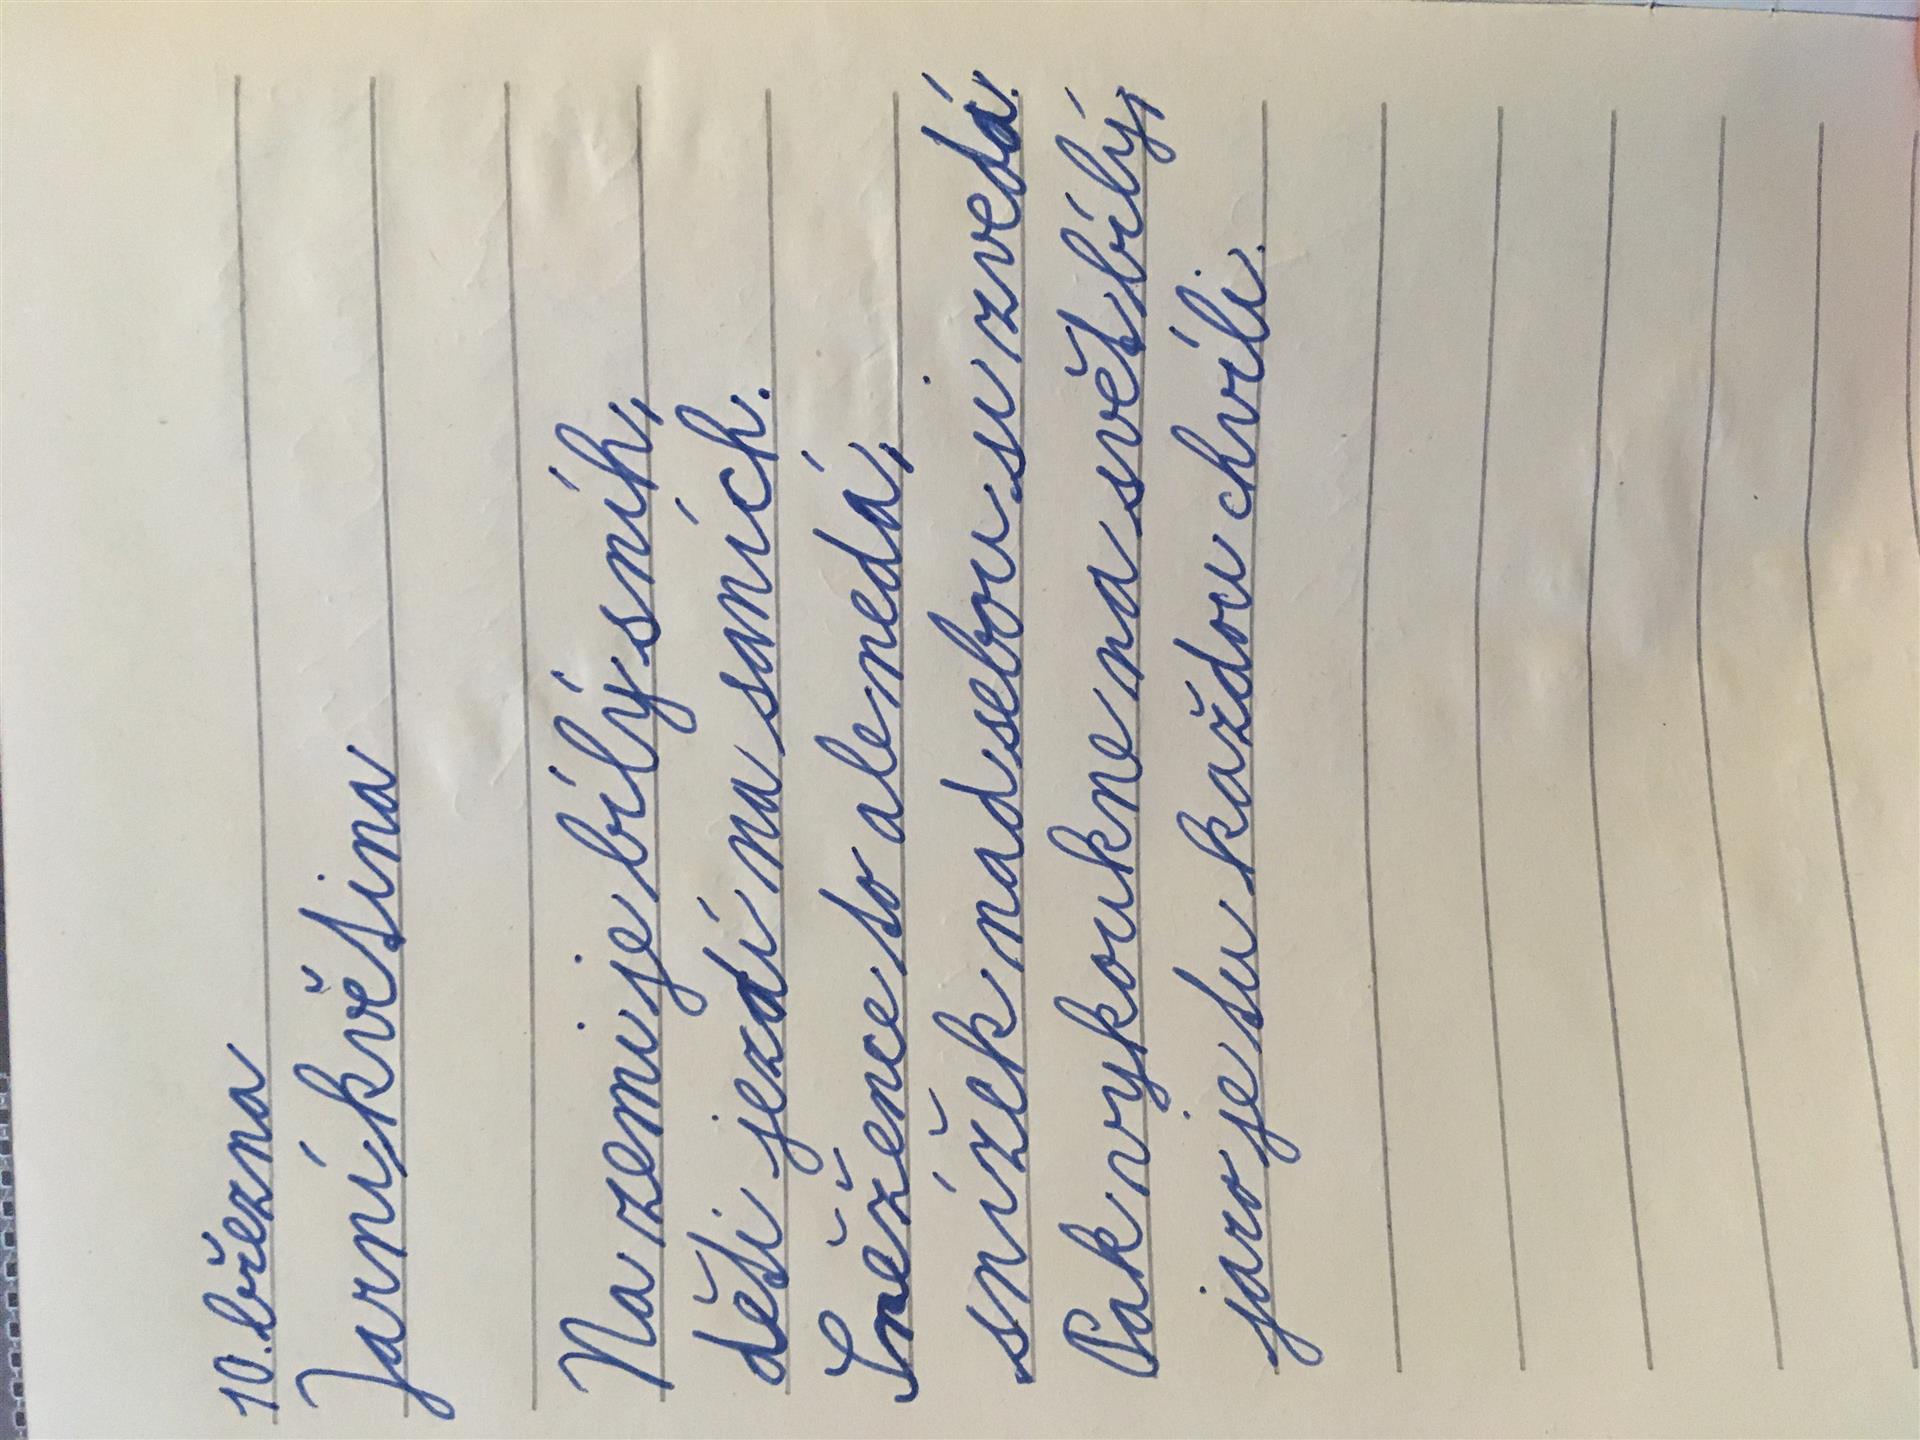 10. března
Jarní květina
Na zemi je bílý sníh,
děti jezdí na saních.
Sněžence to ale nedá,
snížek nad sebou si zvedá.
Pak vykoukne na svět bílý,
jaro je tu každou chvíli.